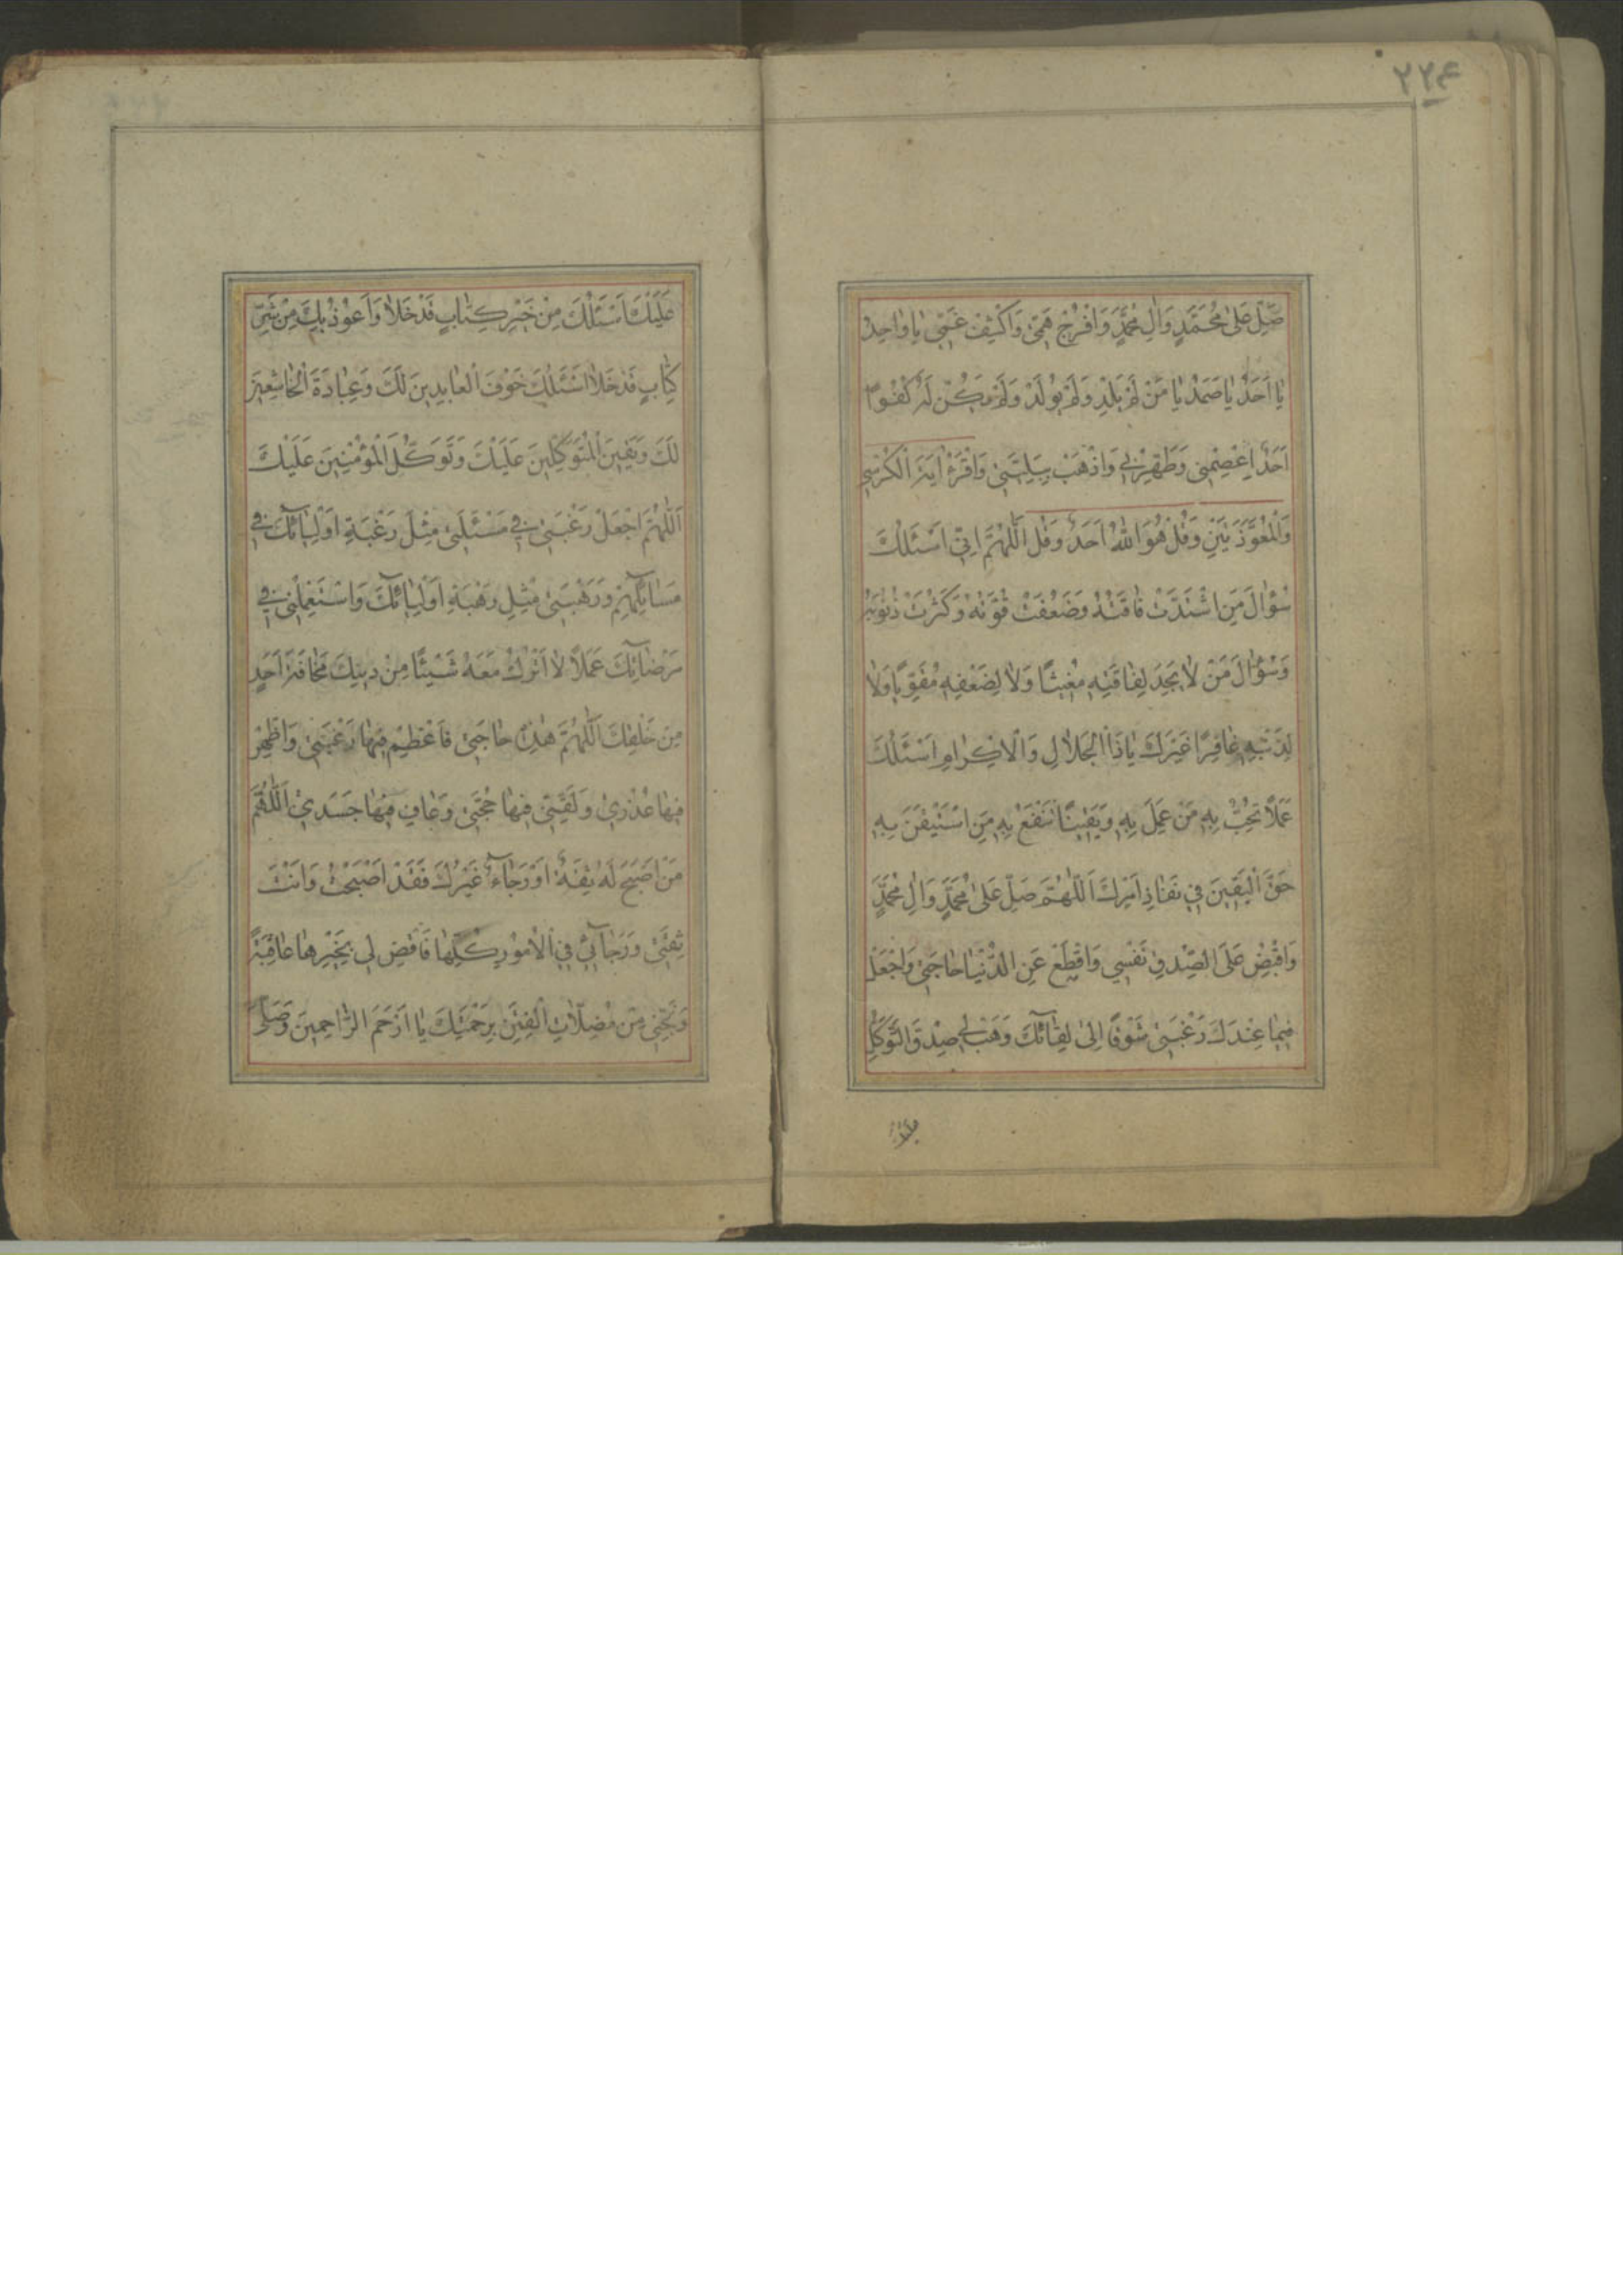 ۲۲۴
صَلِّ عَلىٰ مُحَمَّدٍ وَاٰلِ مُحَمَّدٍ وَافْرُجْ هَمّى وَاكْشِفْ غَمّى يٰا وٰاحِدُ
يٰا اَحَدُ يٰا صَمَدُ يٰا مَنْ لَمْ يَلِدْ وَلَمْ يُولَدْ وَلَمْ يَكُنْ لَهُ كُفُواً
اَحَدٌ اِعْصِمْنِى وَطَهِّرْنِى وَاذْهَبْ بِبَلِيَّتِى وَاقْرَءْ اٰيَةَ الْكُرْسِى
وَالْمُعَوَّذَتَيْنِ وَقُلْ هُوَ اللّٰهُ اَحَدٌ وَقُلْ اَللّٰهُمَّ اِنّى اَسْئَلُكَ
سُؤٰالَ مَنِ اشْتَدَّتْ فٰاقَتُهُ وَضَعُفَتْ قُوَّتُهُ وَكَثُرَتْ ذُنُوبُهُ
وَسُؤٰالَ مَنْ لاٰ يَجِدُ لِفٰاقَتِهِ مُغِيثًا وَلاٰ لِضَعْفِهِ مُقَوِّيًا وَلاٰ
لِذَنْبِهِ غٰافِرًا غَيْرَكَ يٰا ذَا الْجَلاٰلِ وَالْاِكْرٰامِ اَسْئَلُكَ
عَمَلاً تُحِبُّ بِهِ مَنْ عَمِلَ بِهِ وَيَقِينًا تَنْفَعُ بِهِ مَنِ اسْتَيْقَنَ بِهِ
حَقَّ الْيَقِينِ فِى نَفٰاذِ اَمْرِكَ اَللّٰهُمَّ صَلِّ عَلىٰ مُحَمَّدٍ وَاٰلِ مُحَمَّدٍ
وَاقْبِضْ عَلَى الصِّدْقِ نَفْسِي وَاقْطَعْ عَنِ الدُّنْيٰا حٰاجَتى وَاجْعَلْ
فِيمٰا عِنْدَكَ رَغْبَتى شَوْقًا اِلىٰ لِقٰآئِكَ وَهَبْ لِى صِدْقَ التَّوَكُّلِ
عليك
عَلَيْكَ اَسْئَلُكَ مِنْ خَيْرِ كِتٰابٍ قَدْ خَلاٰ وَاَعُوذُ بِكَ مِنْ شَرِّ
كِتٰابٍ قَدْ خَلاٰ اَسْئَلُكَ خَوْفَ الْعٰابِدِينَ لَكَ وَعِبٰادَةَ الْخٰاشِعِينَ
لَكَ وَيَقِينَ الْمُتَوَكِّلِينَ عَلَيْكَ وَتَوَكُّلَ الْمُؤْمِنِينَ عَلَيْكَ
اَللّٰهُمَّ اجْعَلْ رَغْبَتى فِى مَسْئَلَتى مِثْلَ رَغْبَةِ اَوْلِيٰآئِكَ فِى
مَسٰائِلِهِمْ وَرَهْبَتى مِثْلَ رَهْبَةِ اَوْلِيٰآئِكَ وَاسْتَعْمِلْنِى فِى
مَرْضٰاتِكَ عَمَلاً لاٰ اَتْرُكُ مَعَهُ شَيْئًا مِنْ دِينِكَ مَخٰافَةَ اَحَدٍ
مِنْ خَلْقِكَ اَللّٰهُمَّ هٰذِهِ حٰاجَتى فَاَعْظِمْ فِيهٰا رَغْبَتى وَاَظْهِرْ
فِيهٰا عُذْرِي وَلَقِّنّى فِيهٰا حُجَّتى وَعٰافِ فِيهٰا جَسَدِي اَللّٰهُمَّ
مَنْ اَصْبَحَ لَهُ ثِقَةٌ اَوْ رَجٰآءٌ غَيْرُكَ فَقَدْ اَصْبَحْتُ وَاَنْتَ
ثِقَتى وَرَجٰآئِي فِي الْاُمُورِ كُلِّهٰا فَاقْضِ لِي بِخَيْرِهٰا عٰاقِبَةً
وَنَجِّنِى مِنْ مُضِلاّٰتِ الْفِتَنِ بِرَحْمَتِكَ يٰا اَرْحَمَ الرّٰاحِمِينَ وَصَلَّى